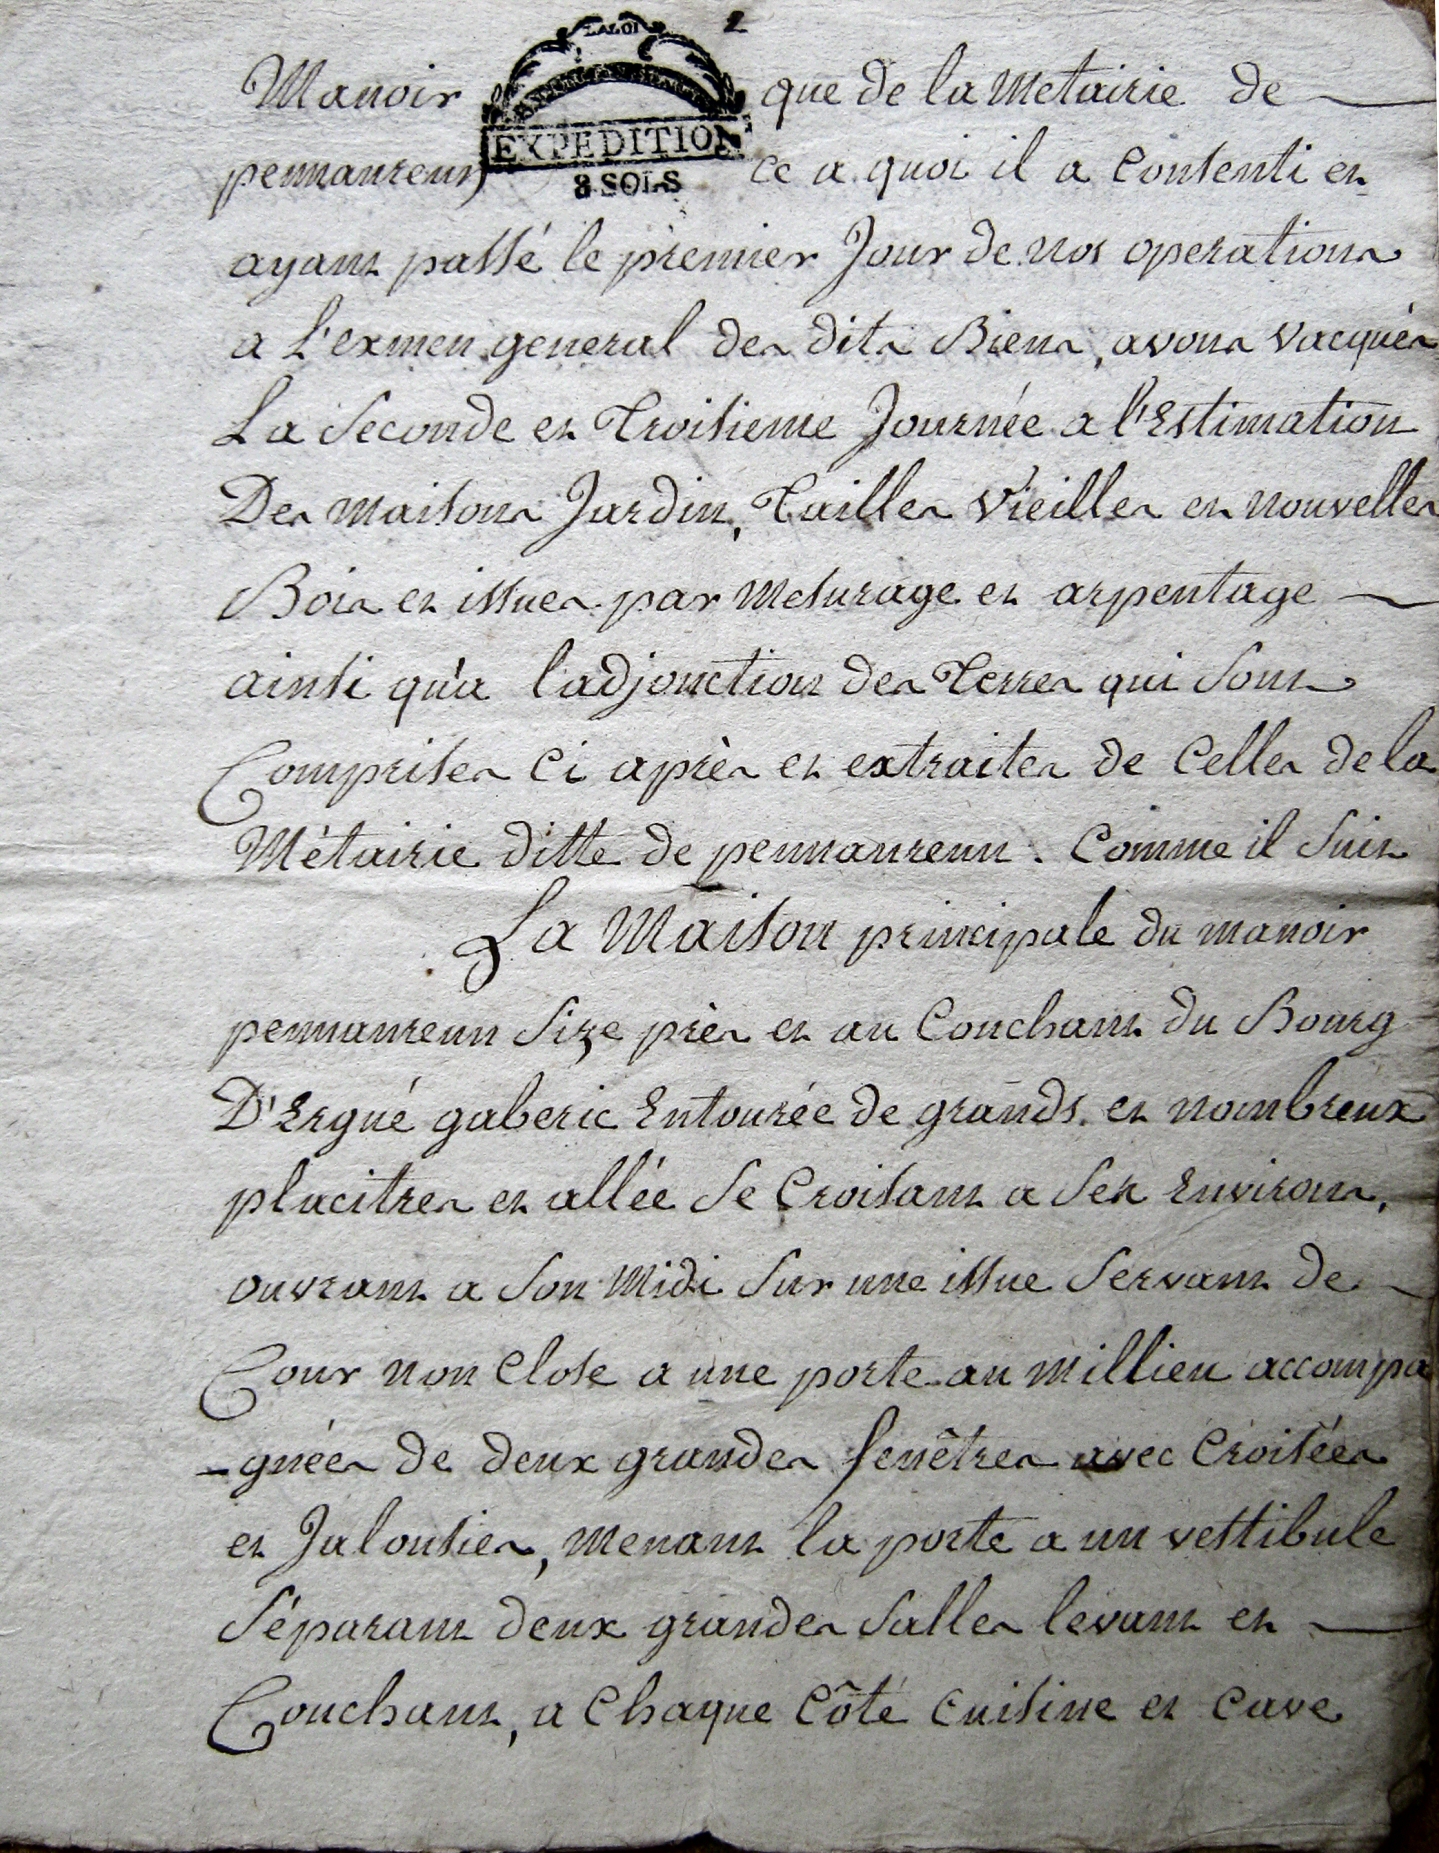 2
LA LOI
Manoir que de la Metairie de
EXPEDITION
pennanrenn ce a quoi il a Consenti et
8 SOLS
ayant passé le premier Jour de nos operations
a L'exmen general des dits Biens, avons vacqués
La Seconde et Troisieme Journée a l'Estimation
Des maisons Jardin, Tailles vieilles et nouvelles
Bois et issues par mesurage et arpentage
ainsi qu'a l'adjonction des Terres qui sont
Comprises Ci après et extraites de Celles de la
Métairie ditte de pennanrenn. Comme il Suit
La Maison principale du manoir
pennanrenn Size près et au Couchant du Bourg
D'Ergué gaberic Entourée de grands et nombreux
placitres et allée Se Croisant a Ses Environs,
ouvrant a Son Midi Sur une issue Servant de
Cour non Close a une porte au millieu accompa
-gnées de deux grandes fenêtres avec Croisées
et Jalousies, menant la porte a un vestibule
Séparant deux grandes Salles levant et
Couchant, a Chaque Côté Cuisine et Cave